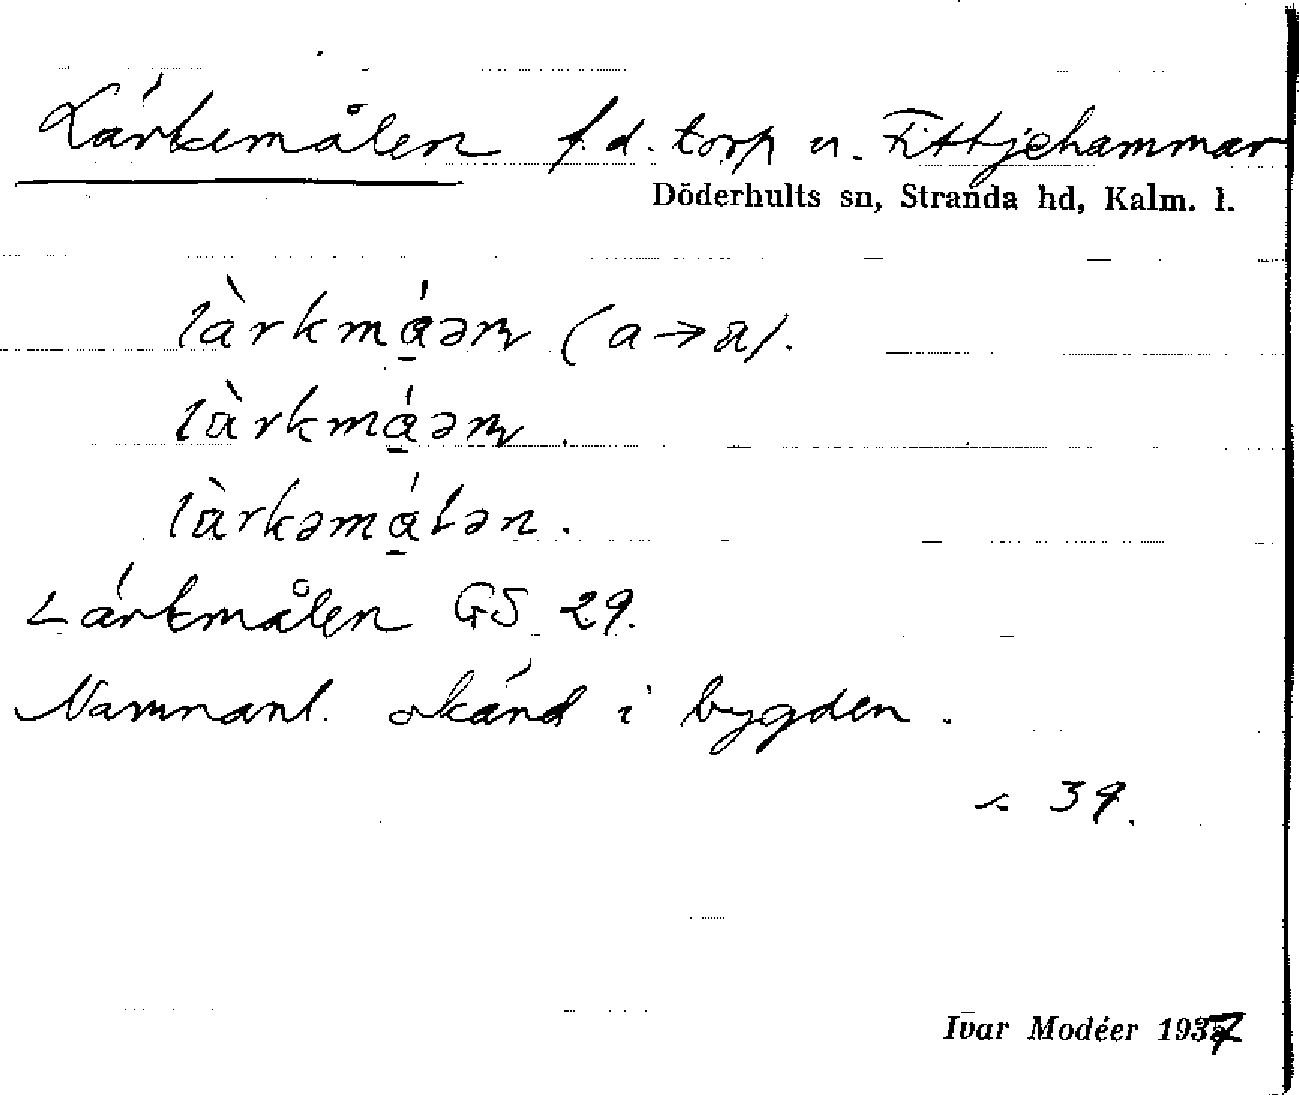 Lärkemålen f.d. torp u. Fittjehammar
Döderhults sn, Stranda hd, Kalm. l.
làrkmá̱ən (a→a).
làrkmá̱ən.
làrkəmá̱lən.
Lärkmålen GS 29.
Namnanl. okänd i bygden.
s 39.
Ivar Modéer 1937